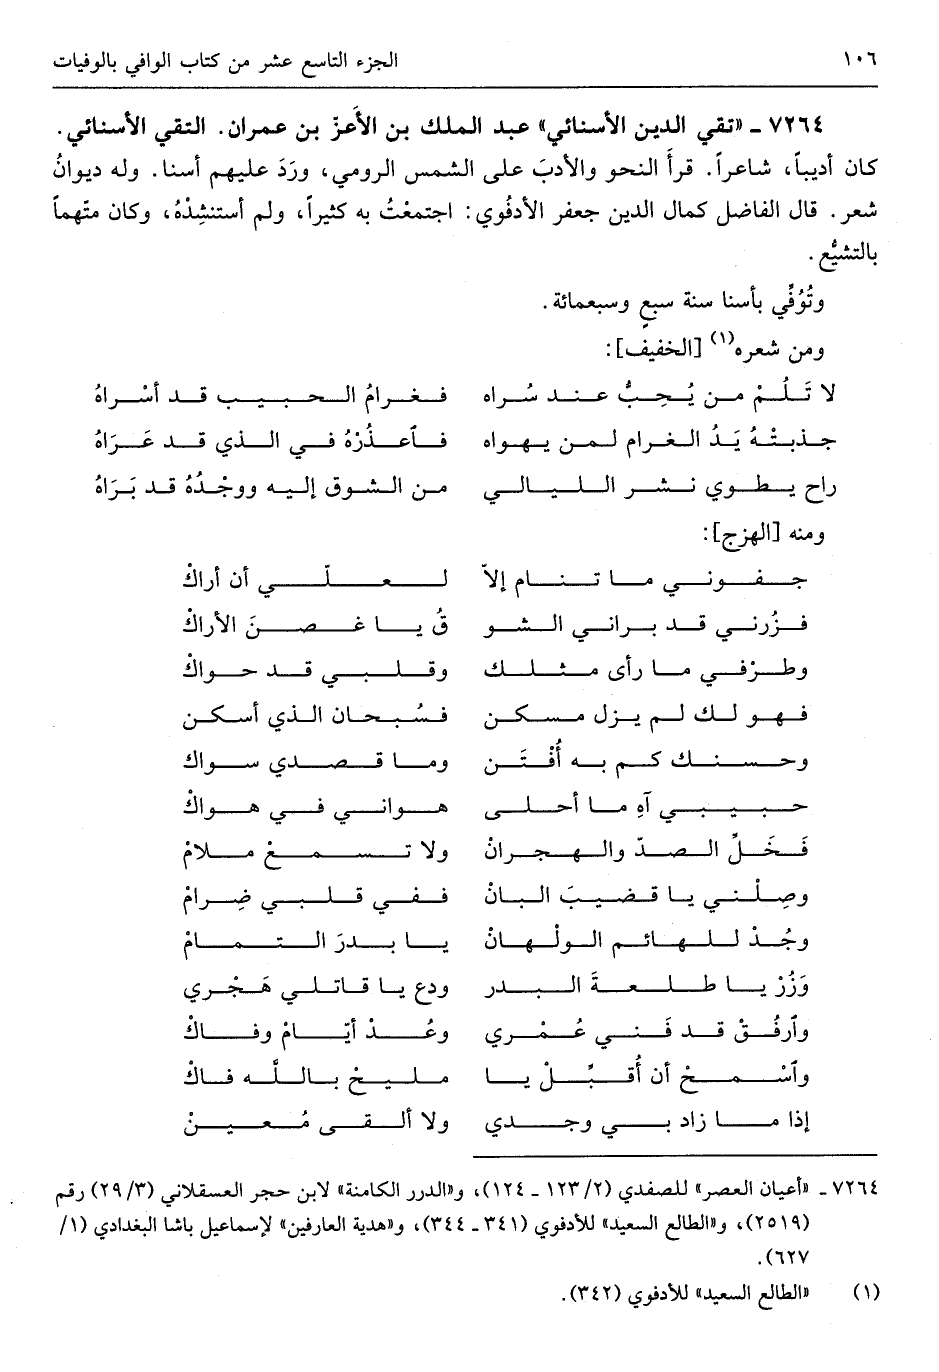 ١٠٦ الجزء التاسع عشر من كتاب الوافي بالوفيات
٧٢٦٤ ـ «تقي الدين الأسنائي» عبد الملك بن الأَعزّ بن عمران. التقي الأسنائي.
كان أديباً، شاعراً. قرأ النحو والأدبَ على الشمس الرومي، ورَدَ عليهم أسنا. وله ديوانُ
شعر. قال الفاضل كمال الدين جعفر الأدفُوي: اجتمعْتُ به كثيراً، ولم أستنشِدْهُ، وكان متّهماً
بالتشيُّع.
وتُوُفِّي بأسنا سنة سبعٍ وسبعمائة.
ومن شعره(١) [الخفيف]:
لا تَلُمْ من يُحِبُّ عند سُراه فغرامُ الحبيب قد أسْراهُ
جذبتْهُ يَدُ الغرام لمن يهواه فٱعذُرْهُ في الذي قد عَرَاهُ
راح يطوي نشر الليالي من الشوق إليه ووجْدُهُ قد بَرَاهُ
ومنه [الهزج]:
جفوني ما تنام إلاّ لعلّي أن أراكْ
فزُرني قد براني الشو قُ يا غصنَ الأراكْ
وطرْفي ما رأى مثلك وقلبي قد حواكْ
فهو لك لم يزل مسكن فسُبحان الذي أسكن
وحسنك كم به أُفْتَن وما قصدي سواكْ
حبيبي آهِ ما أحلى هواني في هواكْ
فَخَلِّ الصدّ والهجرانْ ولا تسمعْ ملامْ
وصِلْني يا قضيبَ البانْ ففي قلبي ضِرامْ
وجُدْ للهائم الولْهانْ يا بدرَ التمامْ
وَزُرْ يا طلعةَ البدر ودع يا قاتلي هَجْري
وٱرفُقْ قد فَني عُمْري وعُدْ أيّامْ وفاكْ
وٱسْمحْ أن أُقبِّلْ يا مليحْ باللَّه فاكْ
إذا ما زاد بي وجدي ولا ألقى مُعينْ
٧٢٦٤ ـ «أعيان العصر» للصفدي (٢/ ١٢٣ ـ ١٢٤)، و«الدرر الكامنة» لابن حجر العسقلاني (٣/ ٢٩) رقم
(٢٥١٩)، و«الطالع السعيد» للأدفوي (٣٤١ ـ ٣٤٤)، و«هدية العارفين» لإسماعيل باشا البغدادي (١/
٦٢٧).
(١) «الطالع السعيد» للأدفوي (٣٤٢).